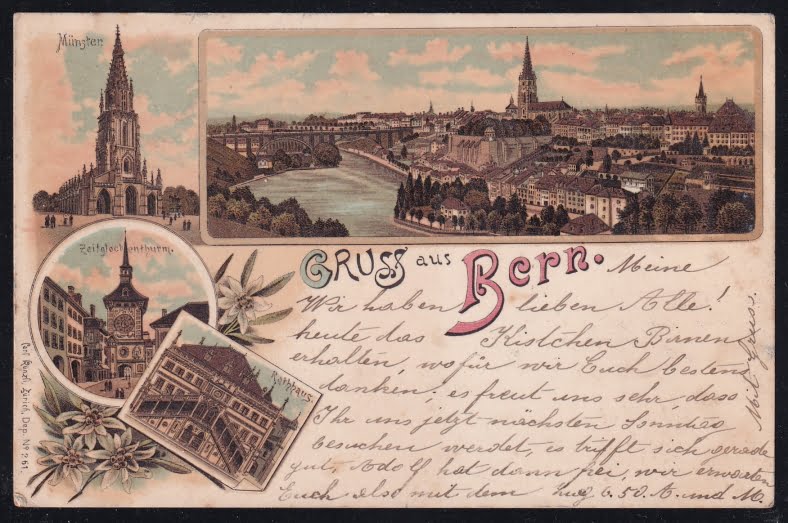 Münster
Zeitglockenthurm.
Rathhaus.
Carl Künzli, Zürich, Dep. No 261.
GRUSS aus Bern.
Meine
lieben Alle!
Wir haben
heute das Kistchen Birnen
erhalten, wofür wir Euch bestens
danken; es freut uns sehr, dass
Ihr uns jetzt nächsten Sonntag
besuchen werdet, es trifft sich gerade
gut, Adolf hat dann frei, wir erwarten
Euch also mit dem Zug 6.50. A. und M.
Mit Gruss.